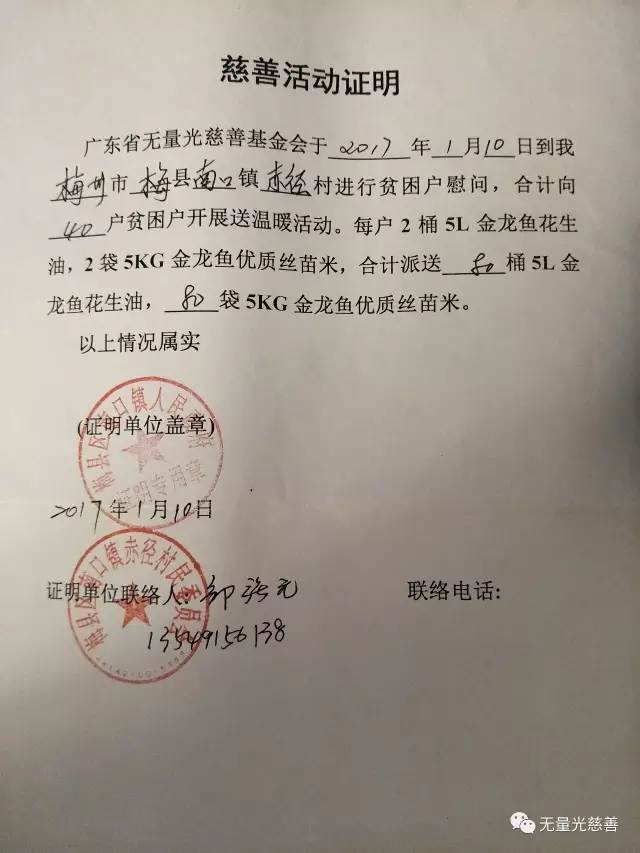 慈善活动证明
广东省无量光慈善基金会于2017年1月10日到我
梅州市梅县南口镇赤径村进行贫困户慰问，合计向
40户贫困户开展送温暖活动。每户2桶5L金龙鱼花生
油，2袋5KG金龙鱼优质丝苗米，合计派送80桶5L金
龙鱼花生油，80袋5KG金龙鱼优质丝苗米。
以上情况属实
梅县区南口镇人民政府
(证明单位盖章)
证明专用章
2017年1月10日
梅县区南口镇赤径村民委员会
证明单位联络人：
联络电话:
13549156138
无量光慈善